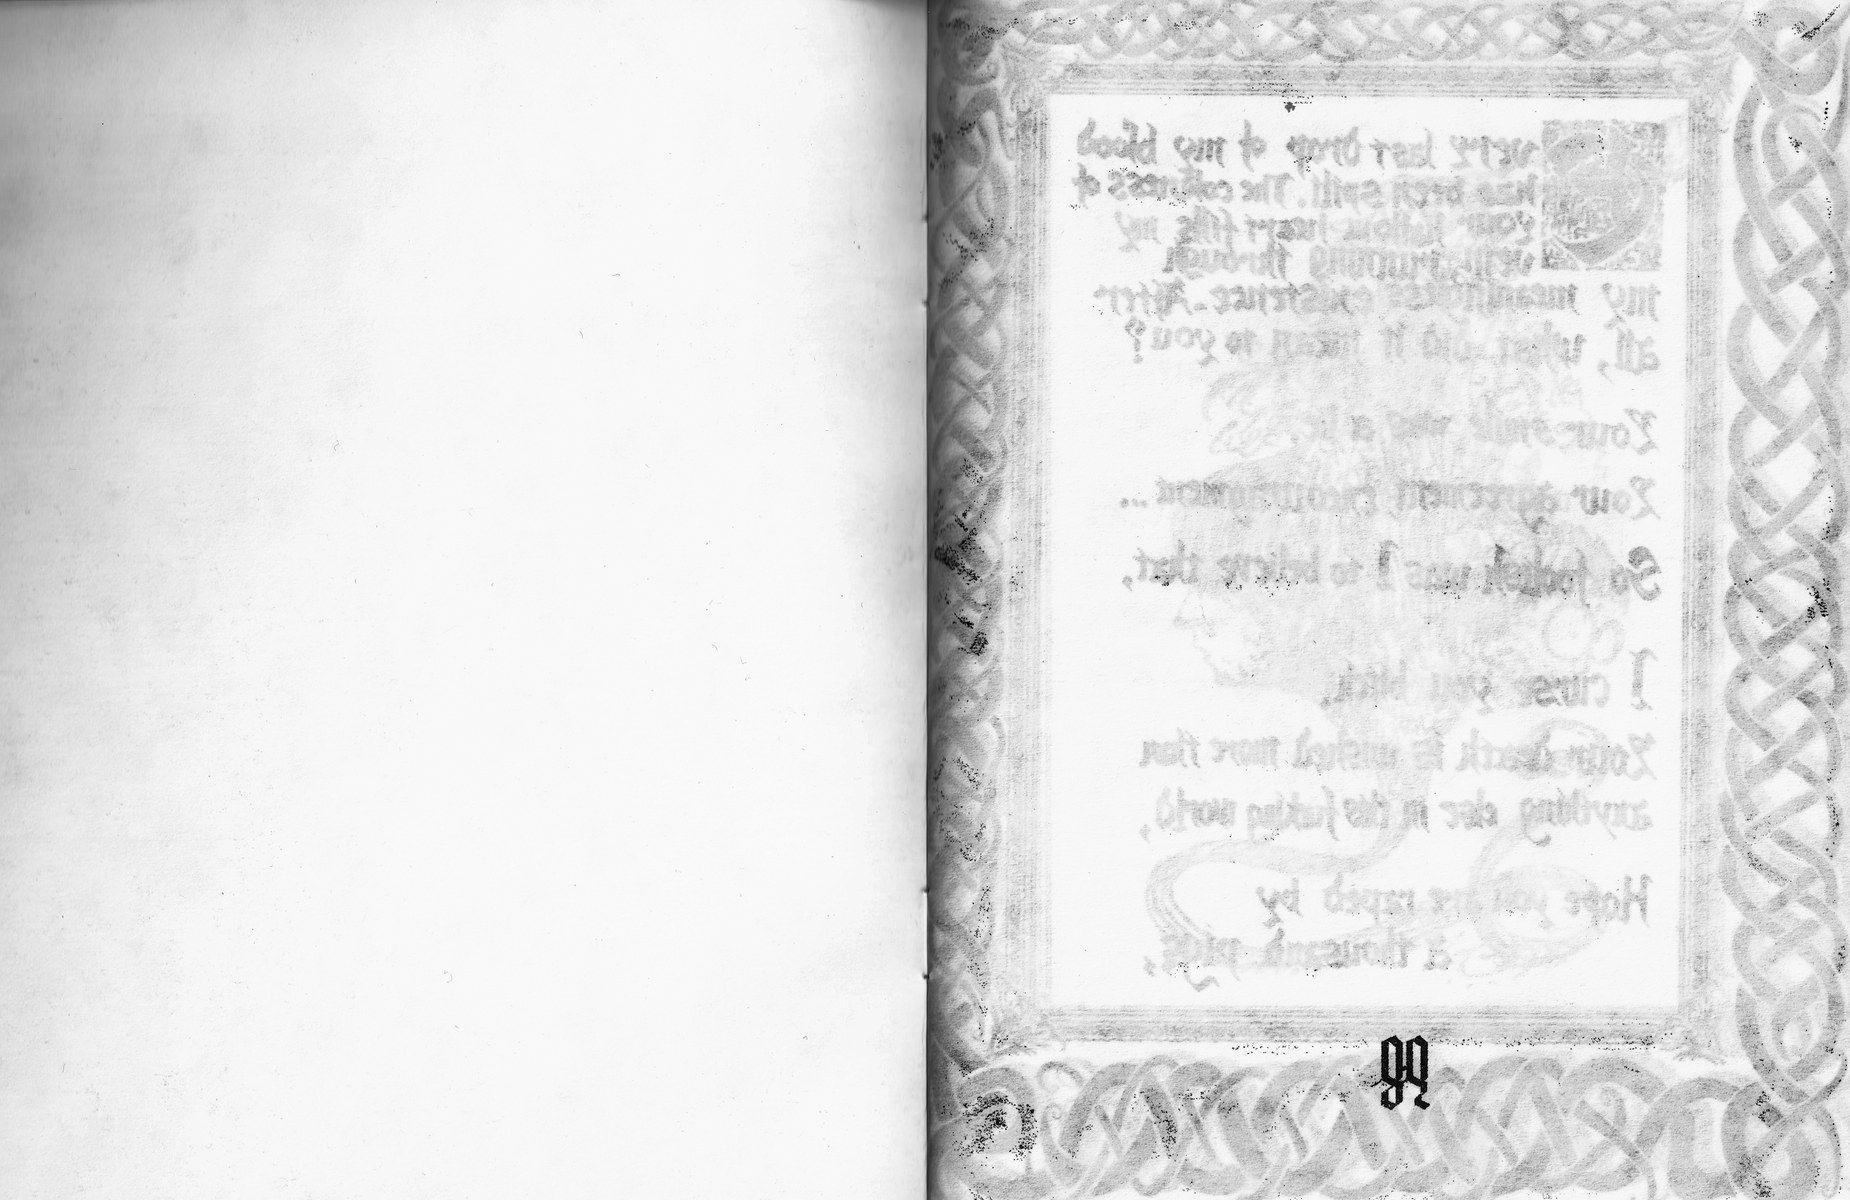 very last drop of my blood
has been spilt. The coldness of
your hollow heart fills my
veins running through
my meaningless existence. After
all, what did it mean to you?
Your smile was a lie,
Your agreement encouragement...
So foolish was I to believe that,
I curse you bitch,
Your death is wished more than
anything else in this fucking world,
Hope you are raped by
a thousand pigs,